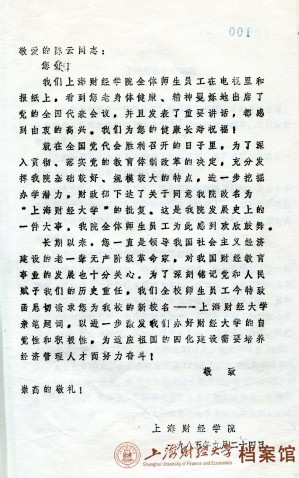 001
敬爱的陈云同志:
您好!
我们上海财经学院全体师生员工在电视里和
报纸上,看到您老身体健康、精神矍烁地出席了
党的全国代表会议,并且发表了重要讲话,都感
到由衷的高兴。我们为您的健康长寿祝福!
就在全国党代会胜利召开的日子里,为了深
入贯彻、落实党的教育体制改革的决定,充分发
挥我院基础较好、规模较大的特点,进一步挖掘
办学潜力,财政部下达了关于同意我院改名为
“上海财经大学”的批复。这是我院发展史上的
一件大事,我院全体师生员工为此感到欢欣鼓舞。
长期以来,您一直是领导我国社会主义经济
建设的老一辈无产阶级革命家,对我国财经教育
事业的发展也十分关心。为了深刻铭记党和人民
赋予我们的历史重任,我们全校师生员工今特致
函恳切请求您为我校的新校名——上海财经大学
亲笔题词,以进一步激发我们办好财经大学的自
觉性和积极性,为适应祖国的四化建设需要培养
经济管理人才而努力奋斗!
敬致
崇高的敬礼!
上海财经学院
一九八五年九月二十四日
上海财经大学 档案馆
Shanghai University of Finance and Economics